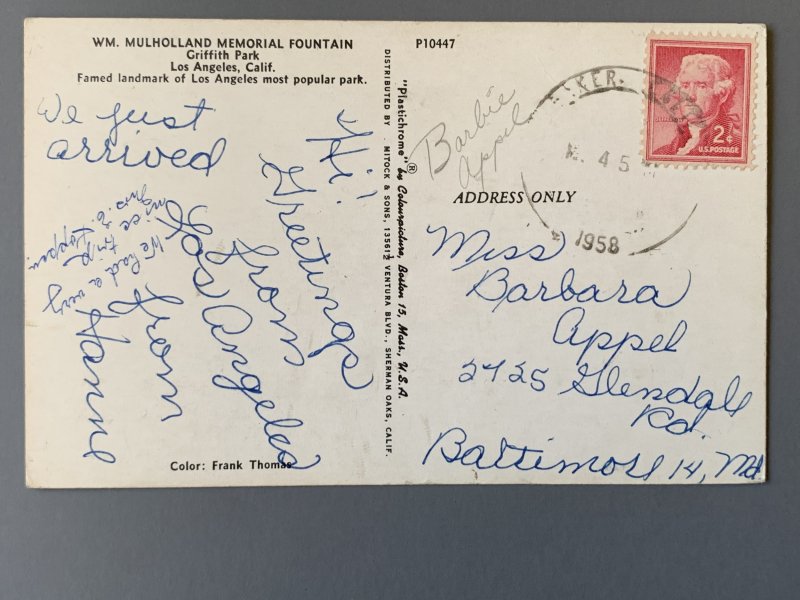 WM. MULHOLLAND MEMORIAL FOUNTAIN
Griffith Park
Los Angeles, Calif.
Famed landmark of Los Angeles most popular park.
We just
arrived
Hi!
Greetings
from
Los Angeles
from
Hanne
We had a very
nice trip
Color: Frank Thomas
DISTRIBUTED BY MITOCK & SONS, 13561½ VENTURA BLVD., SHERMAN OAKS, CALIF.
"Plastichrome"® by Colourpicture, Boston 15, Mass., U.S.A.
P10447
Barbie
Appel
ADDRESS ONLY
45
1958
2¢
U.S. POSTAGE
Miss
Barbara
Appel
2725 Glendale
Rd.
Baltimore 14, Md.